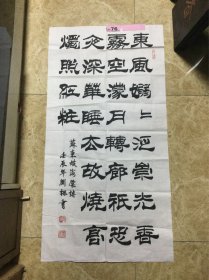 東風嫋〻泛崇光香
霧空濛月轉廊祇恐
夜深華睡去故燒高
燭照紅粧
蘇東坡海棠詩
壬辰年書